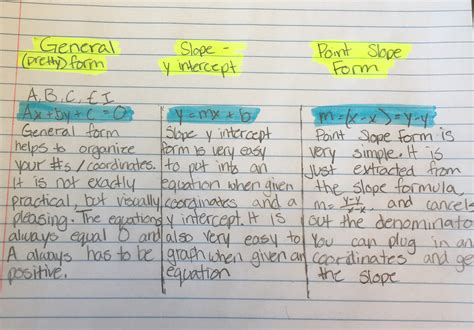 General
(pretty) form
A, B, C, & I
Ax + by + c = 0
General form
helps to organize
your #s / coordinates.
It is not exactly
practical, but visually
pleasing. The equations
always equal 0 and
A always has to be
positive.
Slope -
y intercept
y = mx + b
Slope y intercept
form is very easy
to put into an
equation when given
coordinates and a
y intercept. It is
also very easy to
graph when given an
equation
Point Slope
Form
m = (x - x) = y - y
Point Slope form is
very simple. It is
just extracted from
the slope formula,
m = y-y/x-x, and cancels
out the denominato
You can plug in an
coordinates and ge
the slope